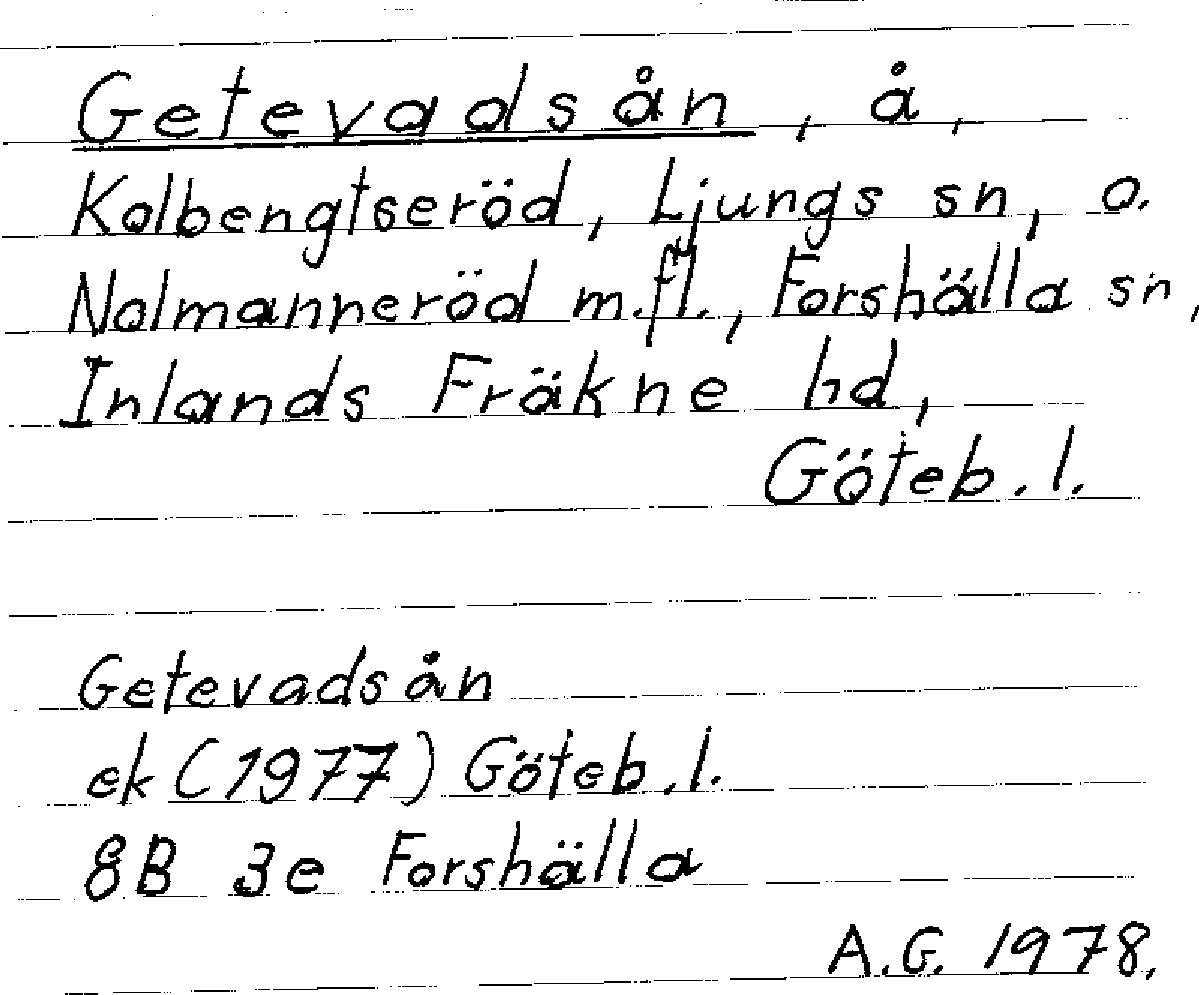 Getevadsån, å,
Kolbengtseröd, Ljungs sn, o.
Nolmanneröd m.fl., Forshälla sn,
Inlands Fräkne hd,
Göteb. l.
Getevadsån
ek (1977) Göteb. l.
8B 3e Forshälla
A.G. 1978.